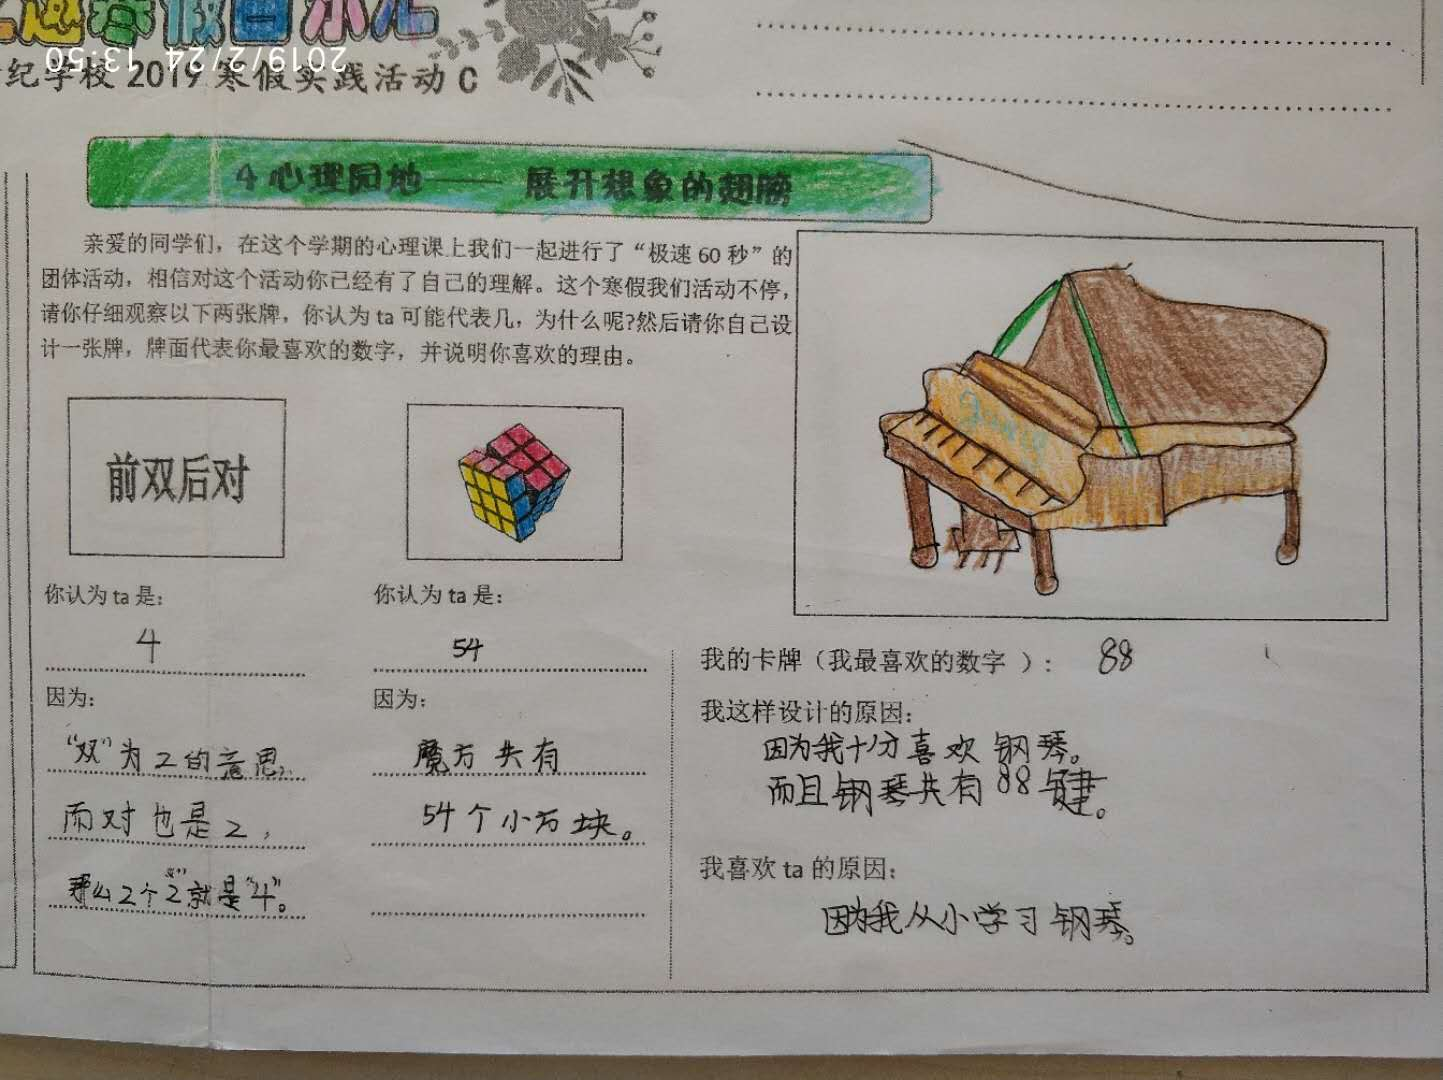 趣寒假音乐汇
2019/2/24 13:50
纪学校 2019 寒假实践活动 C
4 心理园地—— 展开想象的翅膀
亲爱的同学们，在这个学期的心理课上我们一起进行了“极速 60 秒”的
团体活动，相信对这个活动你已经有了自己的理解。这个寒假我们活动不停，
请你仔细观察以下两张牌，你认为 ta 可能代表几，为什么呢?然后请你自己设
计一张牌，牌面代表你最喜欢的数字，并说明你喜欢的理由。
前双后对
你认为 ta 是：
4
因为：
“双”为 2 的意思，
而对也是 2，
那么 2 个“2”就是“4”。
你认为 ta 是：
54
因为：
魔方共有
54 个小方块。
我的卡牌（我最喜欢的数字 ）： 88
我这样设计的原因：
因为我十分喜欢钢琴。
而且钢琴共有 88 键。
我喜欢 ta 的原因：
因为我从小学习钢琴。